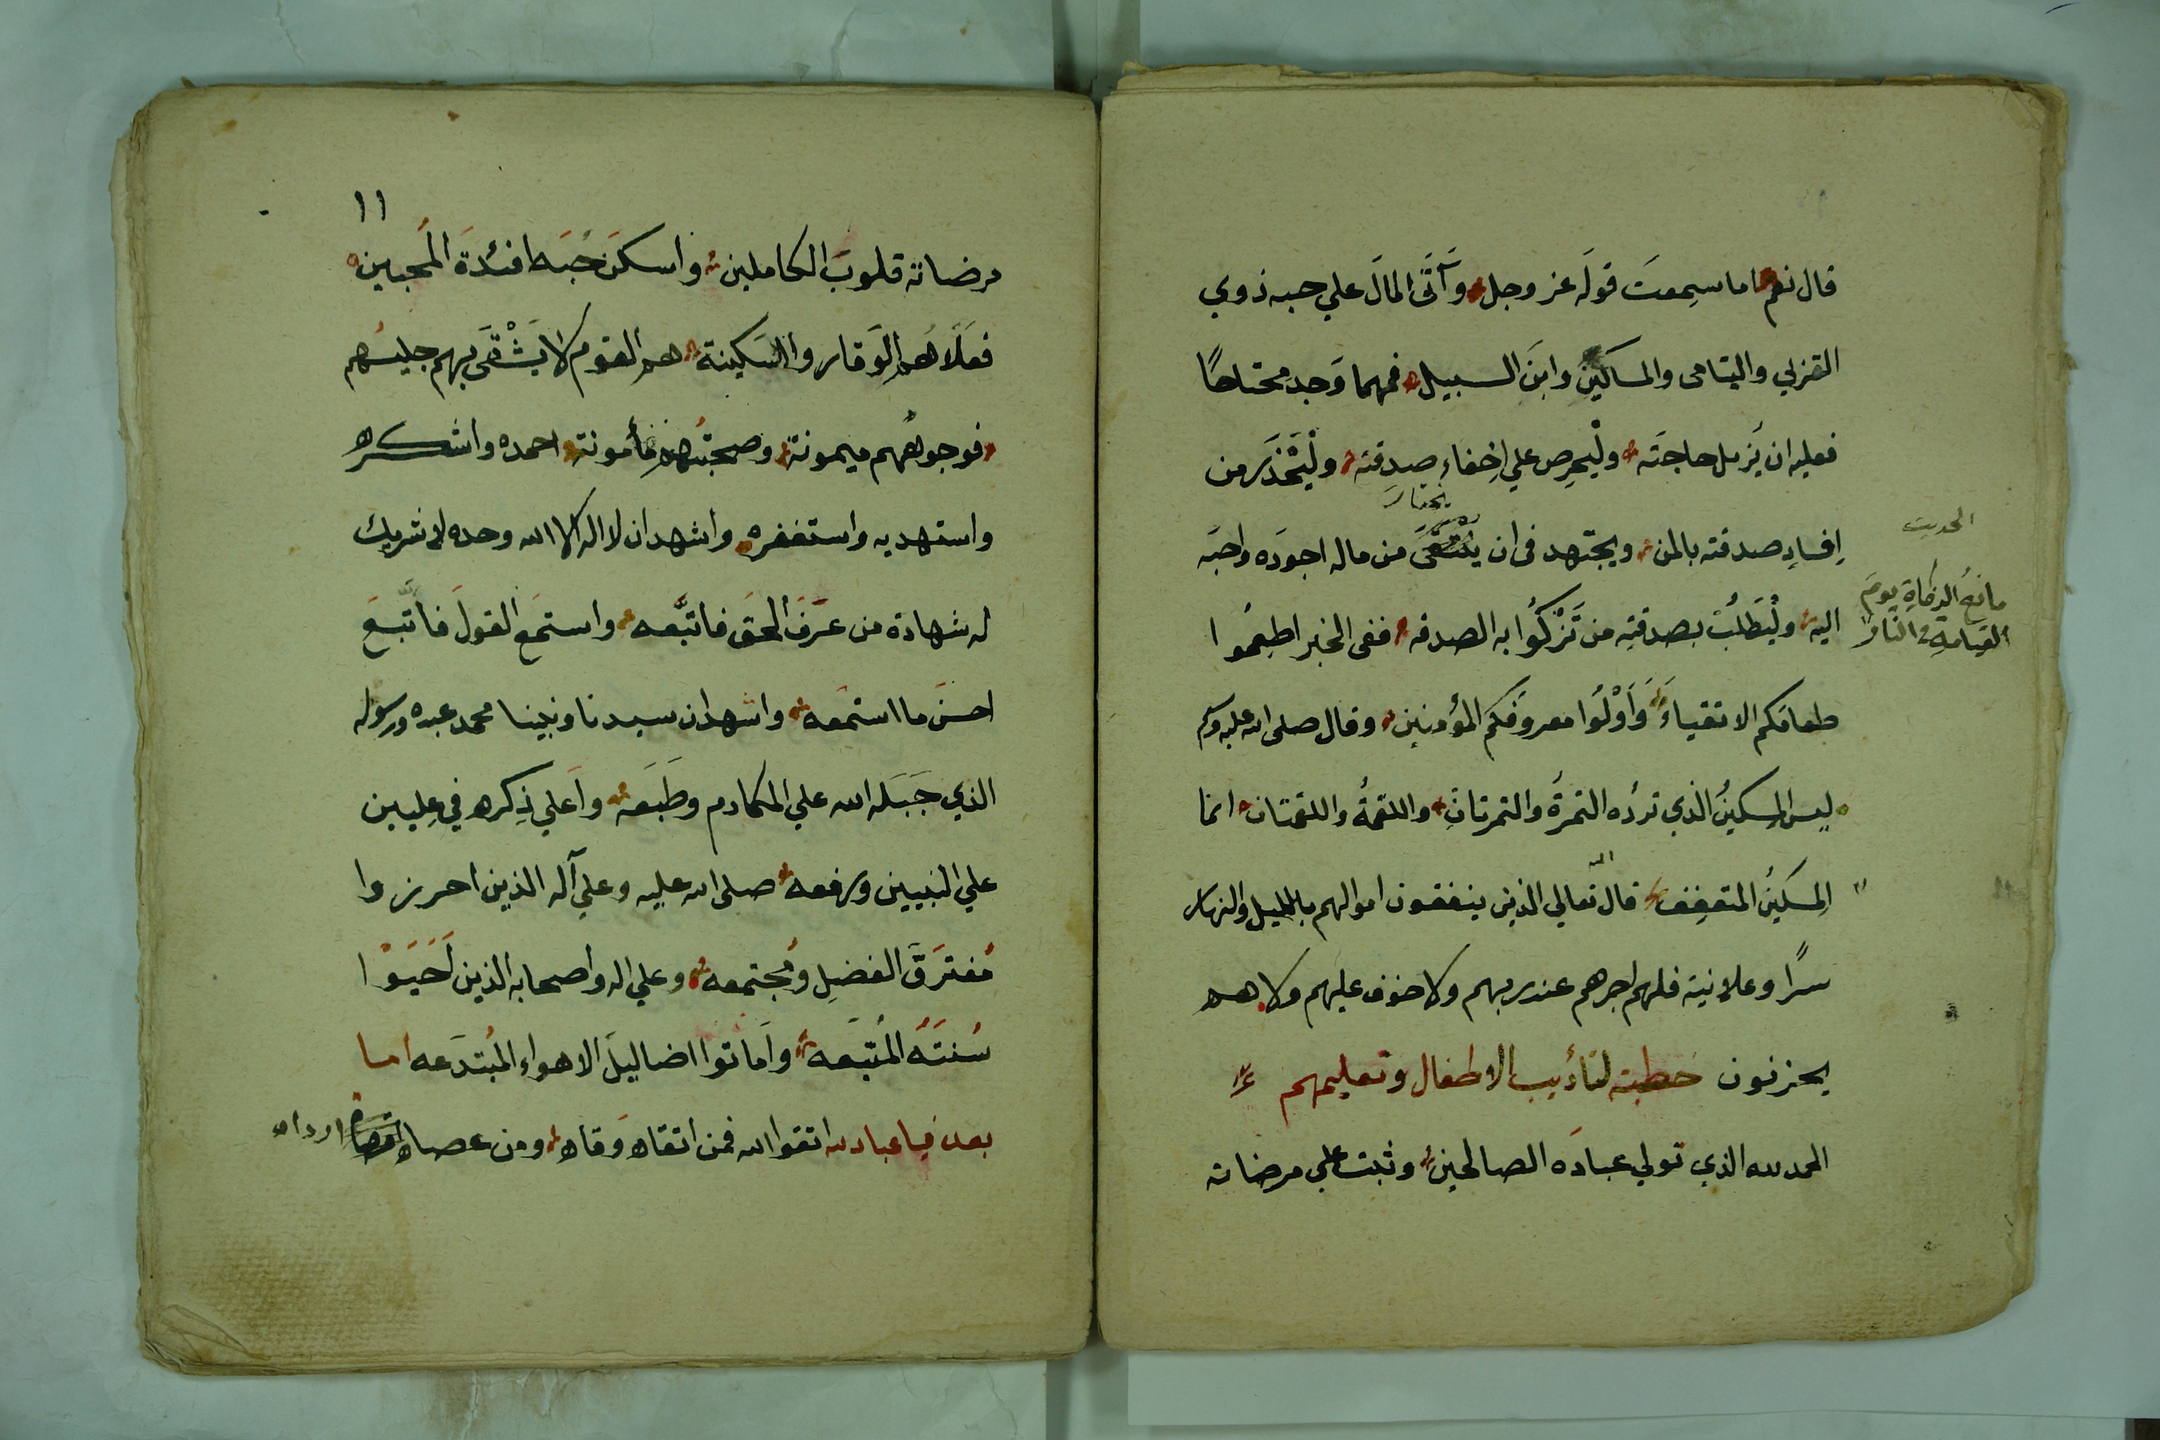 قال نعم اما سمعتَ قولَه عز وجل وَآتَى المالَ علي حبه ذوي
القربي واليتامى والمساكين وابنَ السبيل فمهما وَجد محتاجًا
فعليه ان يُزيل حاجتَه ولْيحرِص علي اِخفاء صدقته ولْيَحْذَر من
يختار
اِفسادِ صدقته بالمن ويجتهد فى ان ينتقى من ماله اجودَه واحبَه
الحديث
مانعُ الزكاةِ يومَ
القيامةِ في النار
اليه ولْيَطَلُبْ بصدقتِه من تَزْكُوا به الصدقه ففى الخبر اطعِمُوا
طعامَكم الاتقياءَ وَأَوْلُوا معروفَكم المؤمنين وقال صلى الله عليه وسلم
ليس المِسكينُ الذي تردُه التمرةُ والتمرتانِ واللقمةُ واللقمتان انما
المِسكينُ المتعفِفُ قال الله تعالي الذين ينفقون اموالهم بالليل والنهار
سرًا وعلانية فلهم اجرهم عند ربهم ولا خوف عليهم ولا هم
يحزنون خطبة لتأديب الاطفال وتعليمهم
الحمد لله الذي تولي عبادَه الصالحين وثبت علي مرضاته
١١
مرضاته قلوبَ الكاملين واسكنَ حُبَه افئدةَ المحبين
فعَلَاهُم الوَقار والسَكينة هم القوم لا يَشْقَى بهم جليسُهم
فوجوهُهم ميمونة وصحبتُهم مأمونة احمده واشكره
واستهديه واستغفره واشهد ان لا اله الا الله وحده لا شريك
له شهادة من عَرَفَ الحقَ فاتبَّعه واستمَع القولَ فاتَّبَعَ
احسنَ ما استمَعه واشهد ان سيدنا ونبينا محمد عبده ورسوله
الذي جَبَلَه الله علي المكارم وطَبَعَه وأعلي ذِكره في عِليين
علي النبيين ورفعه صلى الله عليه وعلي آله الذين احرزوا
مُفترَقَ الفضلِ ومُجتمعه وعلي اله واصحابه الذين اَحَيَوْا
سُنتَهُ المُتبَعه وأماتوا اضاليلَ الاهواء المُبتدَعه اما
بعد فيا عباد الله اتقوا الله فمن اتقاه وَقاه ومن عصاه ارداه